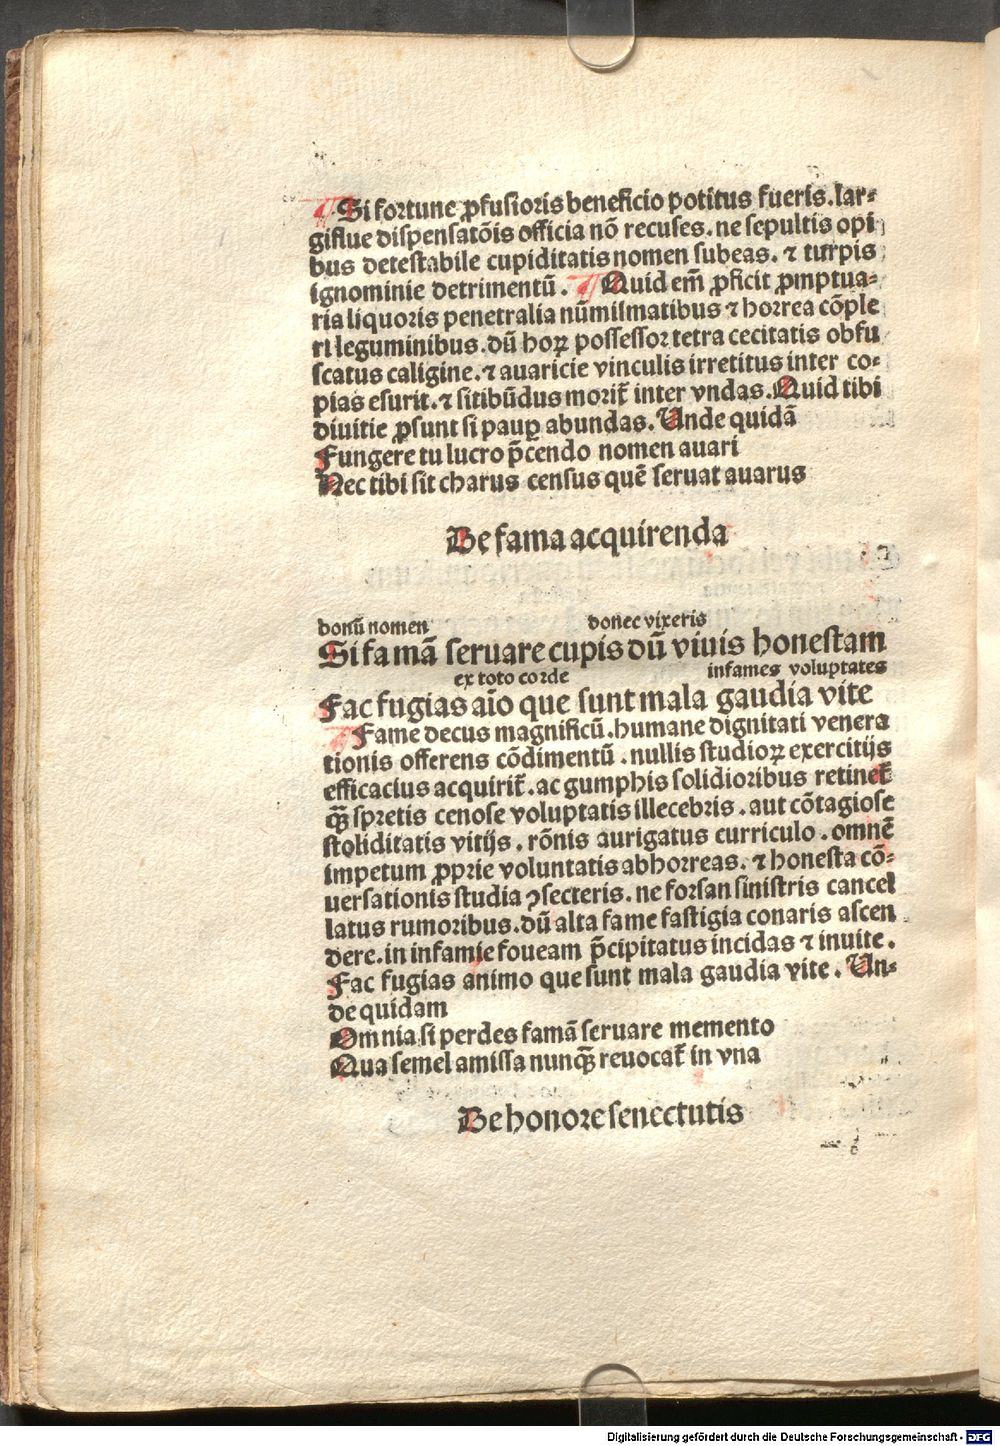 ¶ Si fortune ꝓfusioris beneficio potitus fueris. lar⸗
giflue dispensatōis officia nō recuses. ne sepultis opi
bus detestabile cupiditatis nomen subeas. ⁊ turpis
ignominie detrimentū. ¶ Quid em̄ ꝓficit ꝓmptua⸗
ria liquoris penetralia nūmilmatibus ⁊ horrea cōple
ri leguminibus. dū hoꝝ possessor tetra cecitatis obfu
scatus caligine. ⁊ auaricie vinculis irretitus inter co⸗
pias esurit. ⁊ sitibūdus morit᷑ inter vndas. Quid tibi
diuitie ꝓsunt si pauꝑ abundas. Unde quidā
Fungere tu lucro p̄cendo nomen auari
Nec tibi sit charus census quē seruat auarus
De fama acquirenda
donū nomen donec vixeris
Si famā seruare cupis dū viuis honestam
ex toto corde infames voluptates
Fac fugias aīo que sunt mala gaudia vite
¶ Fame decus magnificū. humane dignitati venera
tionis offerens cōdimentū. nullis studioꝝ exercitijs
efficacius acquirit᷑. ac gumphis solidioribus retinet᷑
ꝙ̄ spretis cenose voluptatis illecebris. aut cōtagiose
stoliditatis vitijs. rōnis aurigatus curriculo. omnē
impetum ꝓprie voluntatis abhorreas. ⁊ honesta cō⸗
uersationis studia ꝯsecteris. ne forsan sinistris cancel
latus rumoribus. dū alta fame fastigia conaris ascen
dere. in infamie foueam p̄cipitatus incidas ⁊ inuite.
Fac fugias animo que sunt mala gaudia vite. Un⸗
de quidam
Omnia si perdes famā seruare memento
Qua semel amissa nunꝙ̄ reuocat᷑ in vna
De honore senectutis
Digitalisierung gefördert durch die Deutsche Forschungsgemeinschaft - DFG